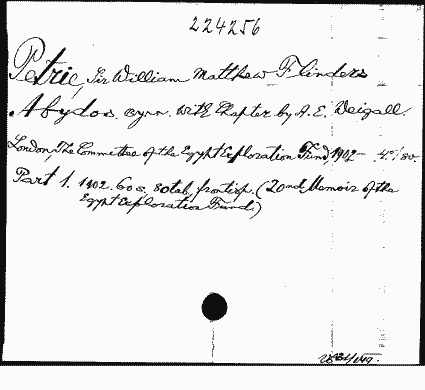 224256
Petrie, Sir William Matthew Flinders
Abydos. With Chapter by A. E. Weigall.
London, The Committee of the Egypt Exploration Fund 1902- 4º/8º.
Part 1. 1902. 60 s. 80 tab, frontisp. (22nd Memoir of the
Egypt Exploration Fund.)